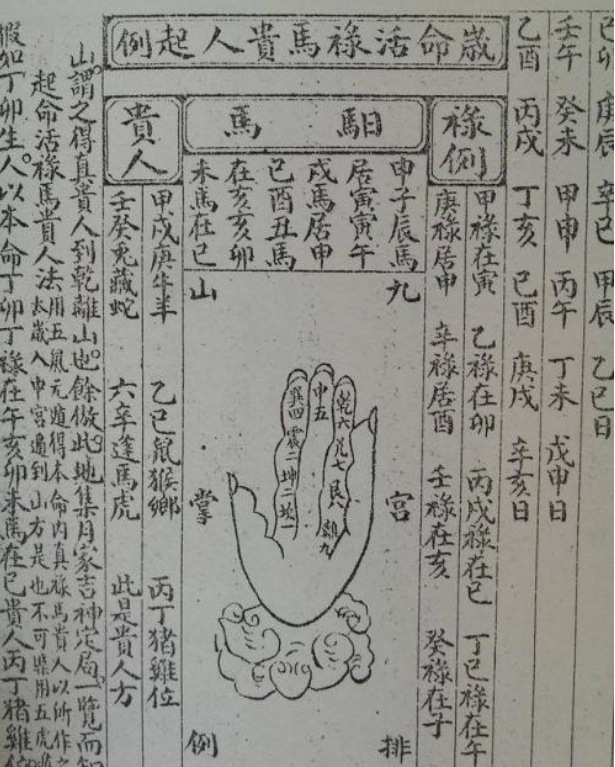 己卯 庚辰 辛巳 甲辰 乙巳日
壬午 癸未 甲申 丙午 丁未 戊申日
乙酉 丙戌 丁亥 己酉 庚戌 辛亥日
歲命活祿馬貴人起例
祿例
甲祿在寅 乙祿在卯 丙戊祿在巳 丁己祿在午
庚祿居申 辛祿居酉 壬祿在亥 癸祿在子
馹馬
申子辰馬
居寅寅午
戌馬居申
巳酉丑馬
在亥亥卯
未馬在巳
九宮排山掌例
乾六 兌七 艮八 離九
中五
巽四 震三 坤二 坎一
貴人
甲戊庚牛羊 乙己鼠猴鄉 丙丁猪雞位
壬癸兎藏蛇 六辛逢馬虎 此是貴人方
山謂之得真貴人到乾離山也餘倣此地集月家吉神定局一覽而知
起命活祿馬貴人法用五鳳元遁得本命內真祿馬貴人以所作之
太歲入中宮遁到山方是也不可槩用五虎遁
假如丁卯生人以本命丁卯丁祿在午亥卯未馬在巳貴人丙丁猪雞位